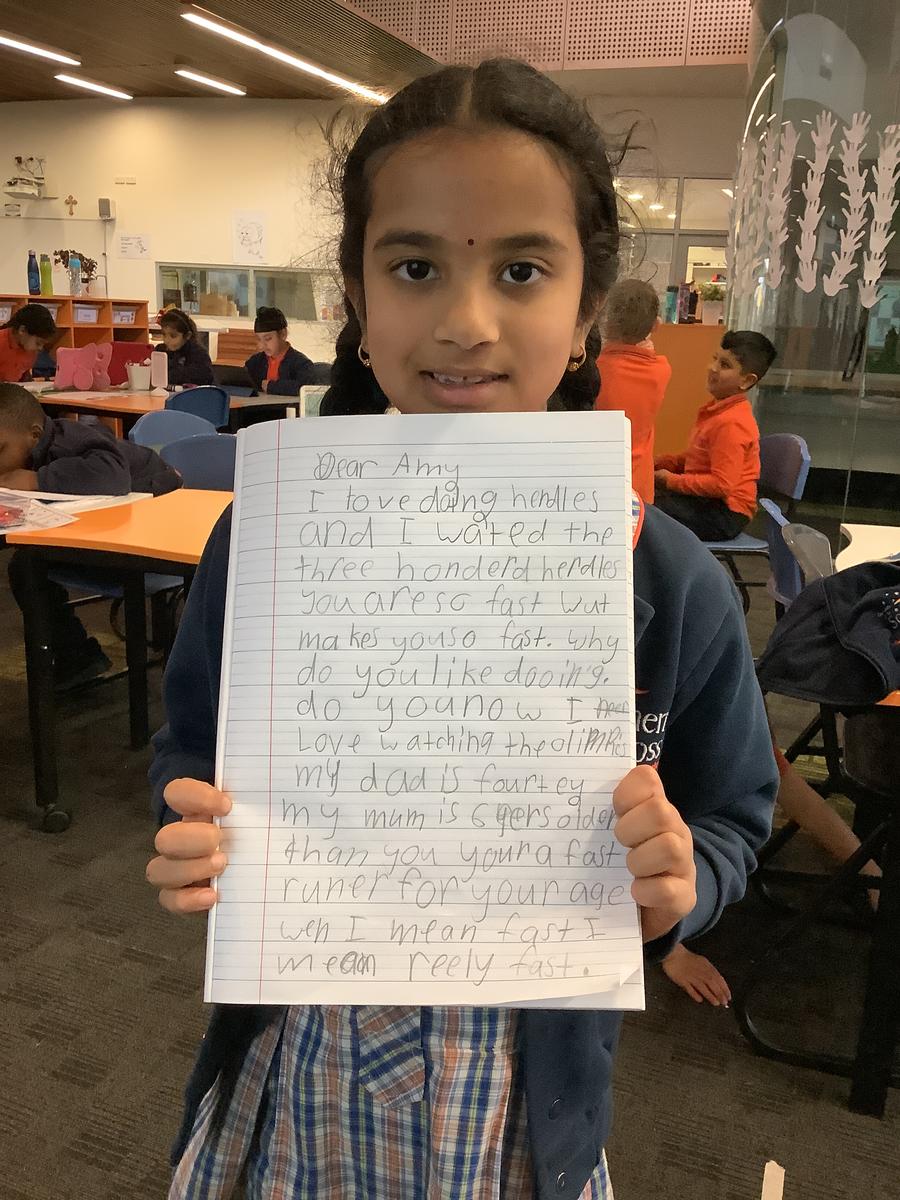 Dear Amy
I love doing herdles
and I wated the
three honderd herdles
you are so fast wut
makes you so fast. why
do you like dooing.
do you now I
Love watching the olimpics
my dad is fourtey
my mum is 6 yers older
than you your a fast
runer for your age
wen I mean fast I
mean reely fast.